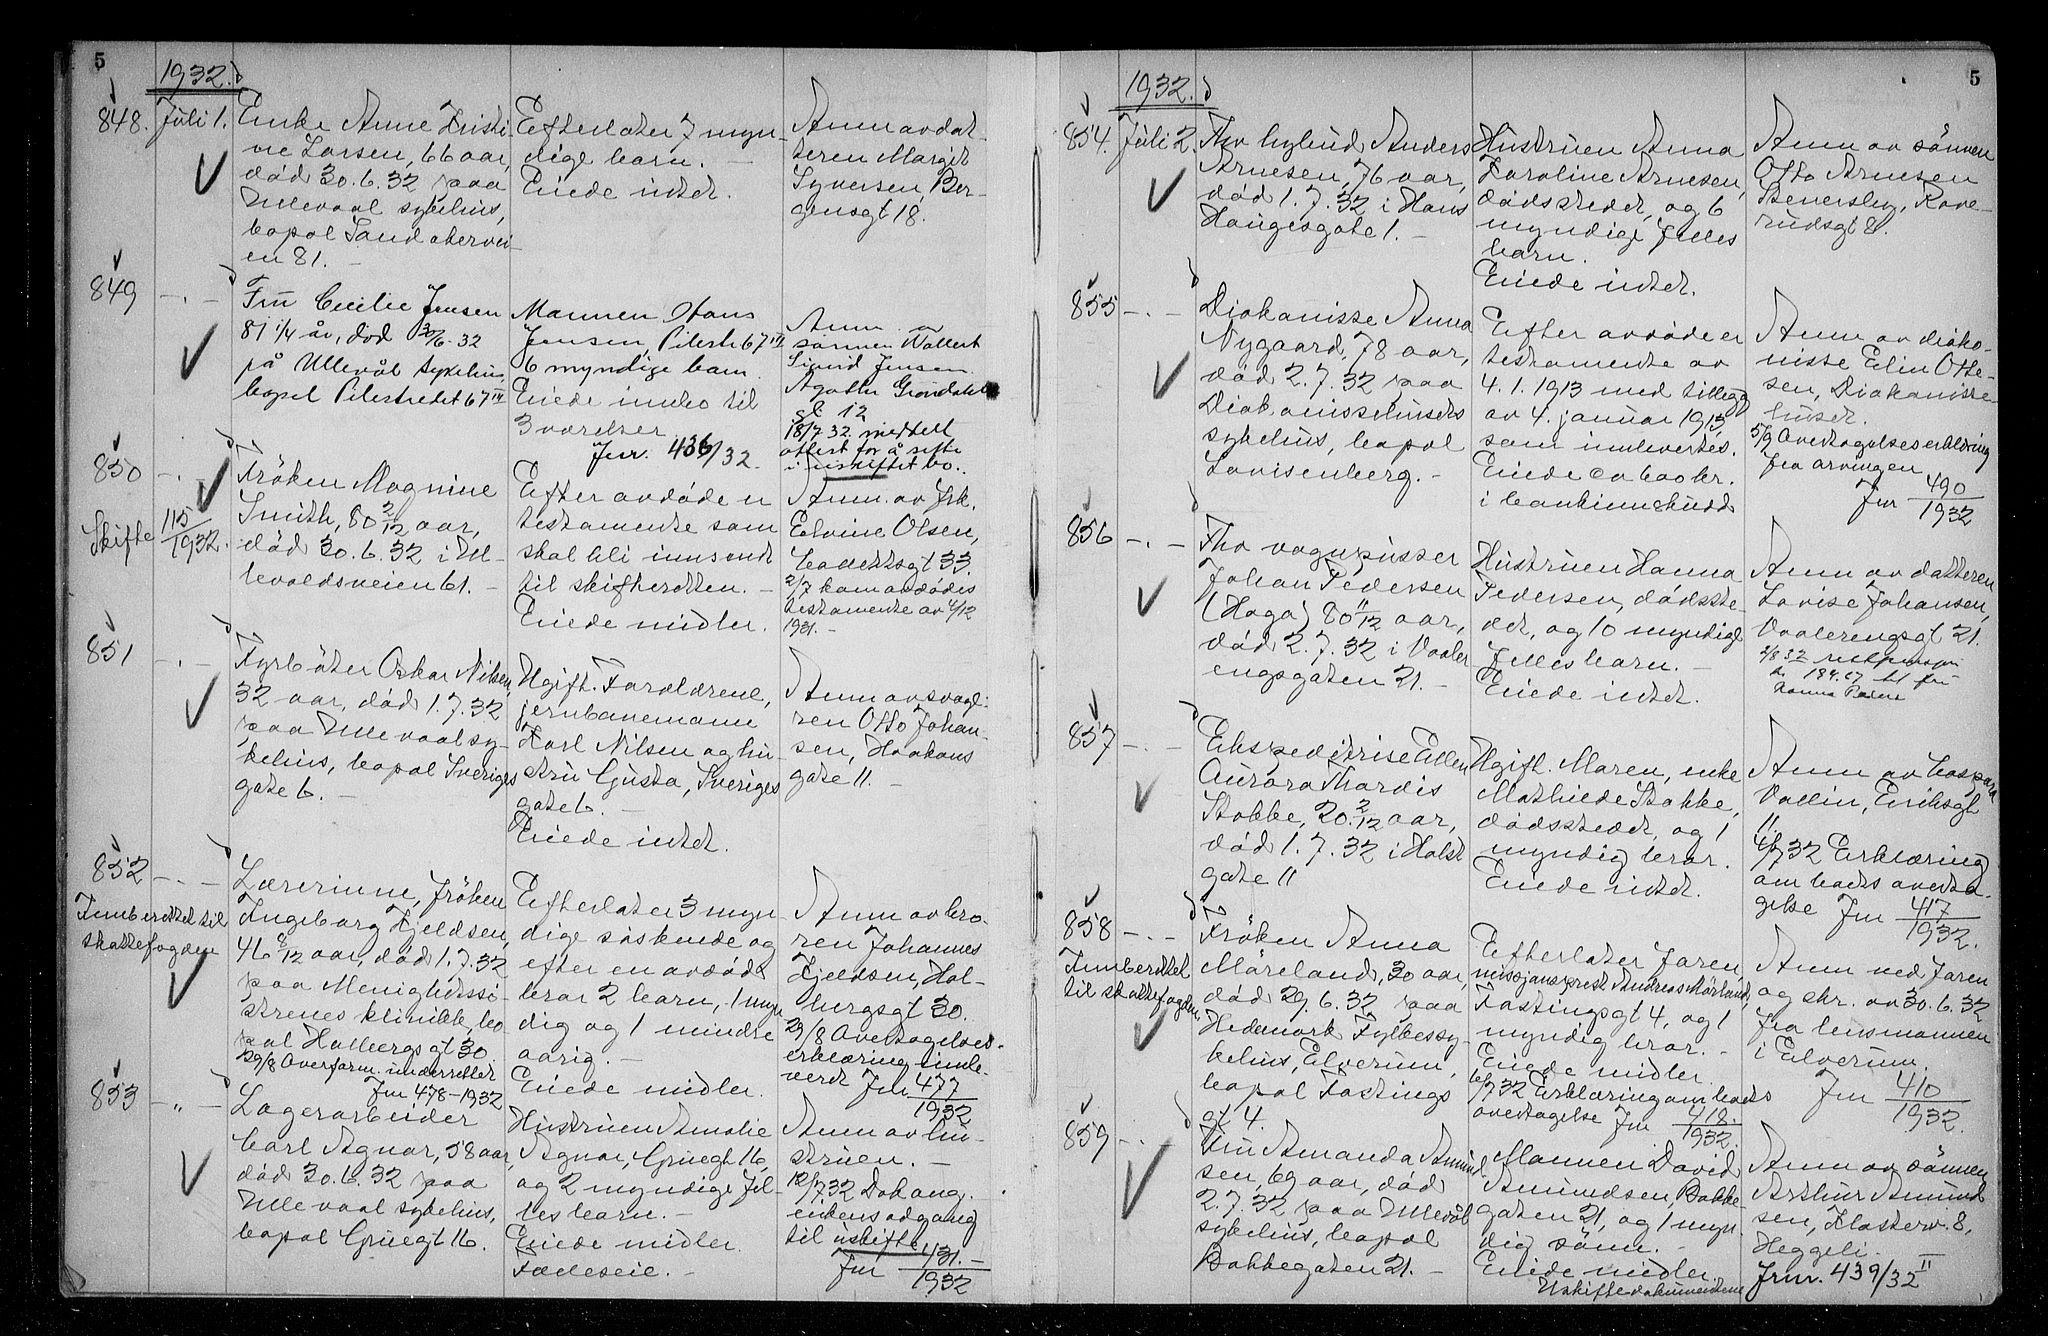 5
1932.
848. Juli 1.
Enke Anne Kristi-
ne Larsen, 66 aar,
død 30.6.32 paa
Ullevaal sykehus,
bopæl Sandakervei-
en 81. –
Efterlater 7 myn-
dige barn. –
Eiede intet.
Anm av dat-
teren Margit
Syversen, Ber-
gensgt 18.
849 – . –
Fru Cecilie Jensen
81 1/4 år, død 30/6-32
på Ullevål sykehus
bopel Pilestredet 67 III
Mannen Hans
Jensen, Pilestr 67 III
6 myndige barn.
Eiede innbo til
3 værelser
Jnr. 436/32.
Anm. av
sønnen Volbert
Sigurd Jensen
Agathe Grøndahls
gt. 12
18/7 32 meddelt
attest for å sitte
i uskiftet bo.
850 – . –
Skifte 115/1932.
Frøken Magnine
Smith, 80 2/12 aar,
død 30.6.32 i Ul-
levoldsveien 61. –
Efter avdøde er
testamente som
skal bli innsendt
til skifteretten. –
Eiede midler.
Anm. av frk.
Elvine Olsen,
Cadettsgt 33.
2/7 kom avdødes
testamente av 4/12
1931. –
851 – . –
Fyrbøter Oskar Nilsen,
32 aar, død 1.7.32
paa Ullevaal sy-
kehus, bopæl Sveriges
gate 6. –
Ugift. Forældrene,
jernbanemann
Karl Nilsen og hu-
stru Gusta, Sveriges
gate 6. –
Eiede intet.
Anm av svoge-
ren Otto Johan-
sen, Haakons
gate 11. –
852 – . –
Innberettet til
skattefogden
Lærerinne, frøken
Ingeborg Kjeldsen,
46 8/12 aar, død 1.7.32
paa Menighetssø-
strenes klinikk, bo-
pæl Holbergsgt 30
29/8 Overform. underrettet
Jnr 478-1932
Efterlater 3 myn-
dige søskende og
efter en avdød
bror 2 barn, 1 myn
dig og 1 mindre
aarig. –
Eiede midler.
Anm av bro-
ren Johannes
Kjeldsen, Hol-
bergsgt 30.
29/8 Overtagelses-
erklæring innle-
vert Jnr 477/1932
853 – „ –
Lagerarbeider
Carl Agnar, 58 aar,
død 30.6.32 paa
Ullevaal sykehus,
bopæl Gruegt 16.
Hustruen Amalie
Agnar, Gruegt 16,
og 2 myndige fel-
les barn. –
Eiede midler.
Fælleseie. –
Anm av hu-
struen. –
12/7 32 Dok ang.
enkens adgang
til uskifte
Jnr 431.-/1932
5
1932.
854. Juli 2.
Fhv bybud Anders
Arnesen, 76 aar,
død 1.7.32 i Hans
Haugesgate 1. –
Hustruen Anna
Karoline Arnesen,
dødsstedet, og 6
myndige felles
barn.
Eiede intet.
Anm av sønnen
Otto Arnesen
Stenersby, Rove-
rudsgt 8.
855 – . –
Diakonisse Anna
Nygaard, 78 aar,
død 2.7.32 paa
Diakonissehusets
sykehus, bopæl
Lovisenberg. –
Efter avdøde er
testamente av
4.1.1913 med tillegg
av 4. januar 1913
som innlevertes.
Eiede ca 600 kr.
i bankinnskudd
Anm av diako-
nisse Elin Otte-
sen, Diakonisse-
huset.
5/9 Overtagelseserklæring
fra arvingen
Jnr 490/1932
856 – . –
Fhv vognpusser
Johan Pedersen
(Haga) 80 11/12 aar,
død 2.7.32 i Vaaler
engsgaten 21. –
Hustruen Hanna
Pedersen, dødsste-
det, og 10 myndige
felles barn. –
Eiede intet.
Anm av datteren
Lovise Johansen,
Vaalerengsgt 21.
857 – . –
Ekspeditrise Ellen
Aurora Thordis
Stokke, 20 2/12 aar,
død 1.7.32 i Holst
gate 11
Ugift. Moren, enke
Mathilde Stokke,
dødsstedet, og 1
myndig bror.
Eiede intet.
Anm av Caspara
Vallin, Eriksgt
11.
Erklæring
om boets overta-
gelse Jnr 417/1932.
858 – . –
Innberettet
til skattefogden
Frøken Anna
Møreland, 30 aar,
død 29.6.32 paa
Hedmark Fylkessy-
kehus, Elverum,
bopæl Fastings
gt 4.
Efterlater faren
misjonsprest Andreas Mørland,
Fastingsgt 4, og 1
myndig bror. –
Eiede midler.
16/7 32 Erklæring om boets
overtagelse Jnr 418./1932.
Anm ved faren
og skr. av 30.6.32
fra lensmannen
i Elverum.
Jnr 410/1932.
859 – . –
Fru Amanda Amund
sen, 69 aar, død
2.7.32 paa Ullevål
sykehus, bopæl
Bakkegaten 21. –
Mannen David
Amundsen, Bakke-
gaten 21, og 1 myn-
dig sønn. –
Eiede midler.
Uskiftedokumentene
Anm av sønnen
Arthur Amund
sen, Klosterv. 8,
Heggeli. –
Jnr. 439/32 II